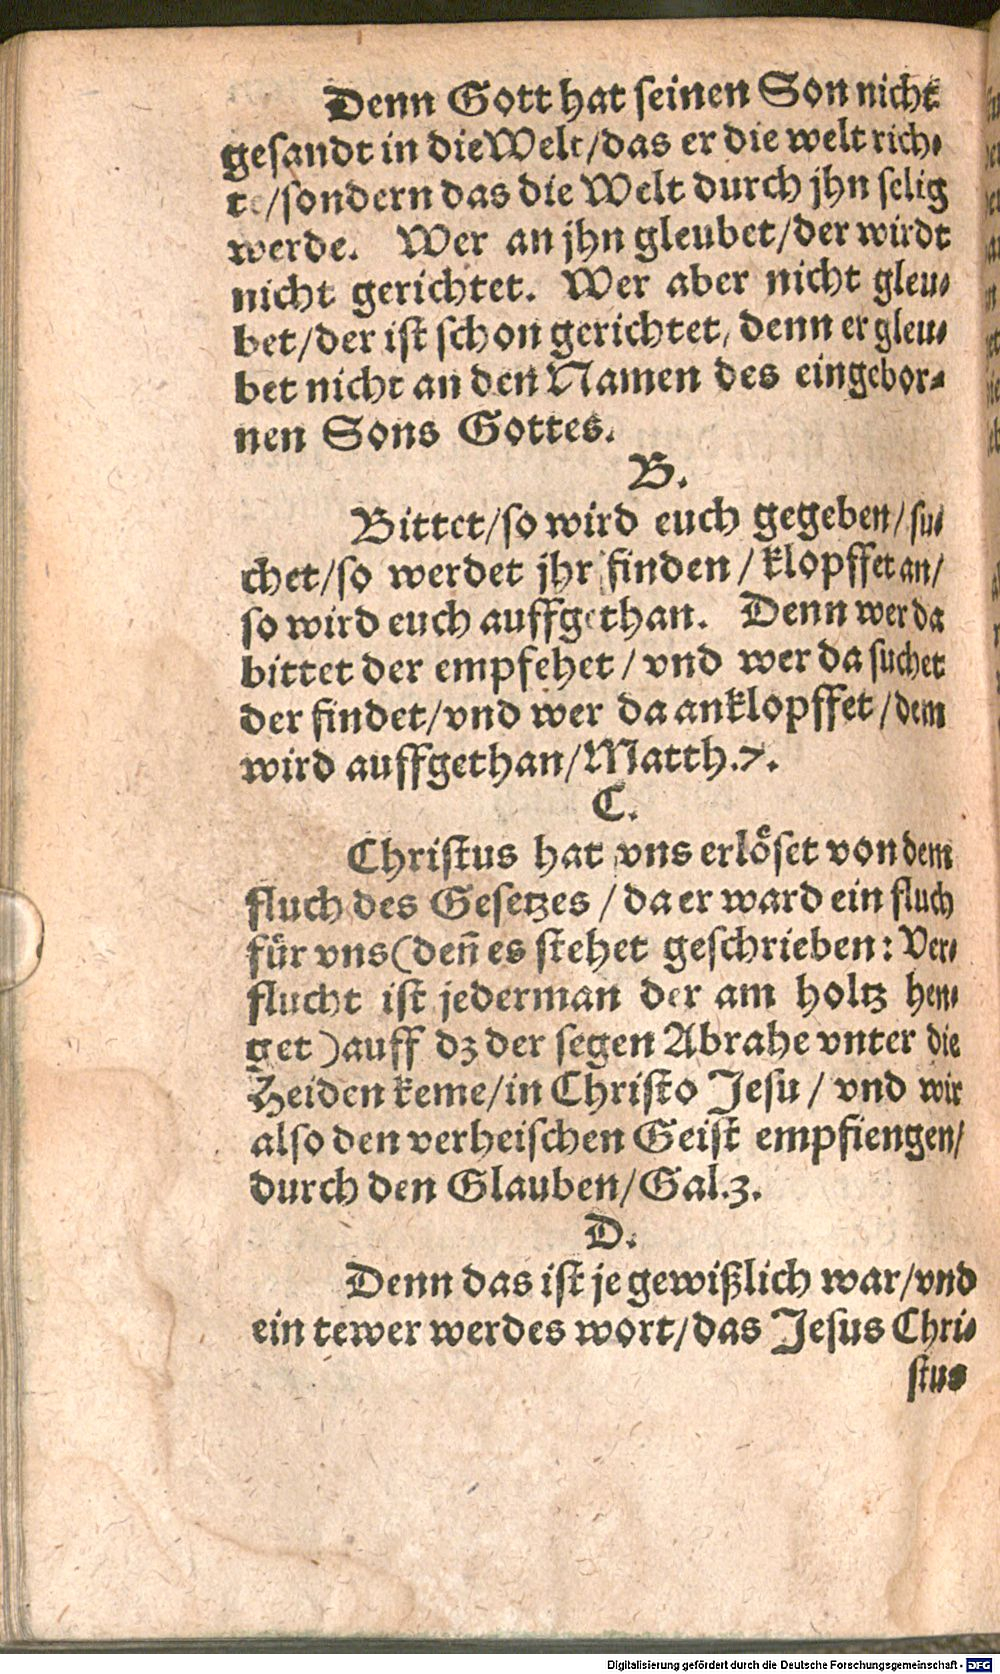 Denn Gott hat seinen Son nicht
gesandt in die Welt/das er die welt rich⸗
te/sondern das die Welt durch jhn selig
werde. Wer an jhn gleubet/der wirdt
nicht gerichtet. Wer aber nicht gleu⸗
bet/der ist schon gerichtet, denn er gleu⸗
bet nicht an den Namen des eingebor⸗
nen Sons Gottes.
B.
Bittet/so wird euch gegeben/su⸗
chet/so werdet jhr finden/klopffet an/
so wird euch auffgethan. Denn wer da
bittet der empfehet/vnd wer da suchet
der findet/vnd wer da anklopffet/dem
wird auffgethan/Matth.7.
C.
Christus hat vns erlöset von dem
fluch des Gesetzes/da er ward ein fluch
für vns(deñ es stehet geschrieben: Ver⸗
flucht ist jederman der am holtz hen⸗
get)auff dz der segen Abrahe vnter die
Heiden keme/in Christo Jesu/vnd wir
also den verheischen Geist empfiengen/
durch den Glauben/Gal.3.
D.
Denn das ist je gewißlich war/vnd
ein tewer werdes wort/das Jesus Chri⸗
stus
Digitalisierung gefördert durch die Deutsche Forschungsgemeinschaft - DFG